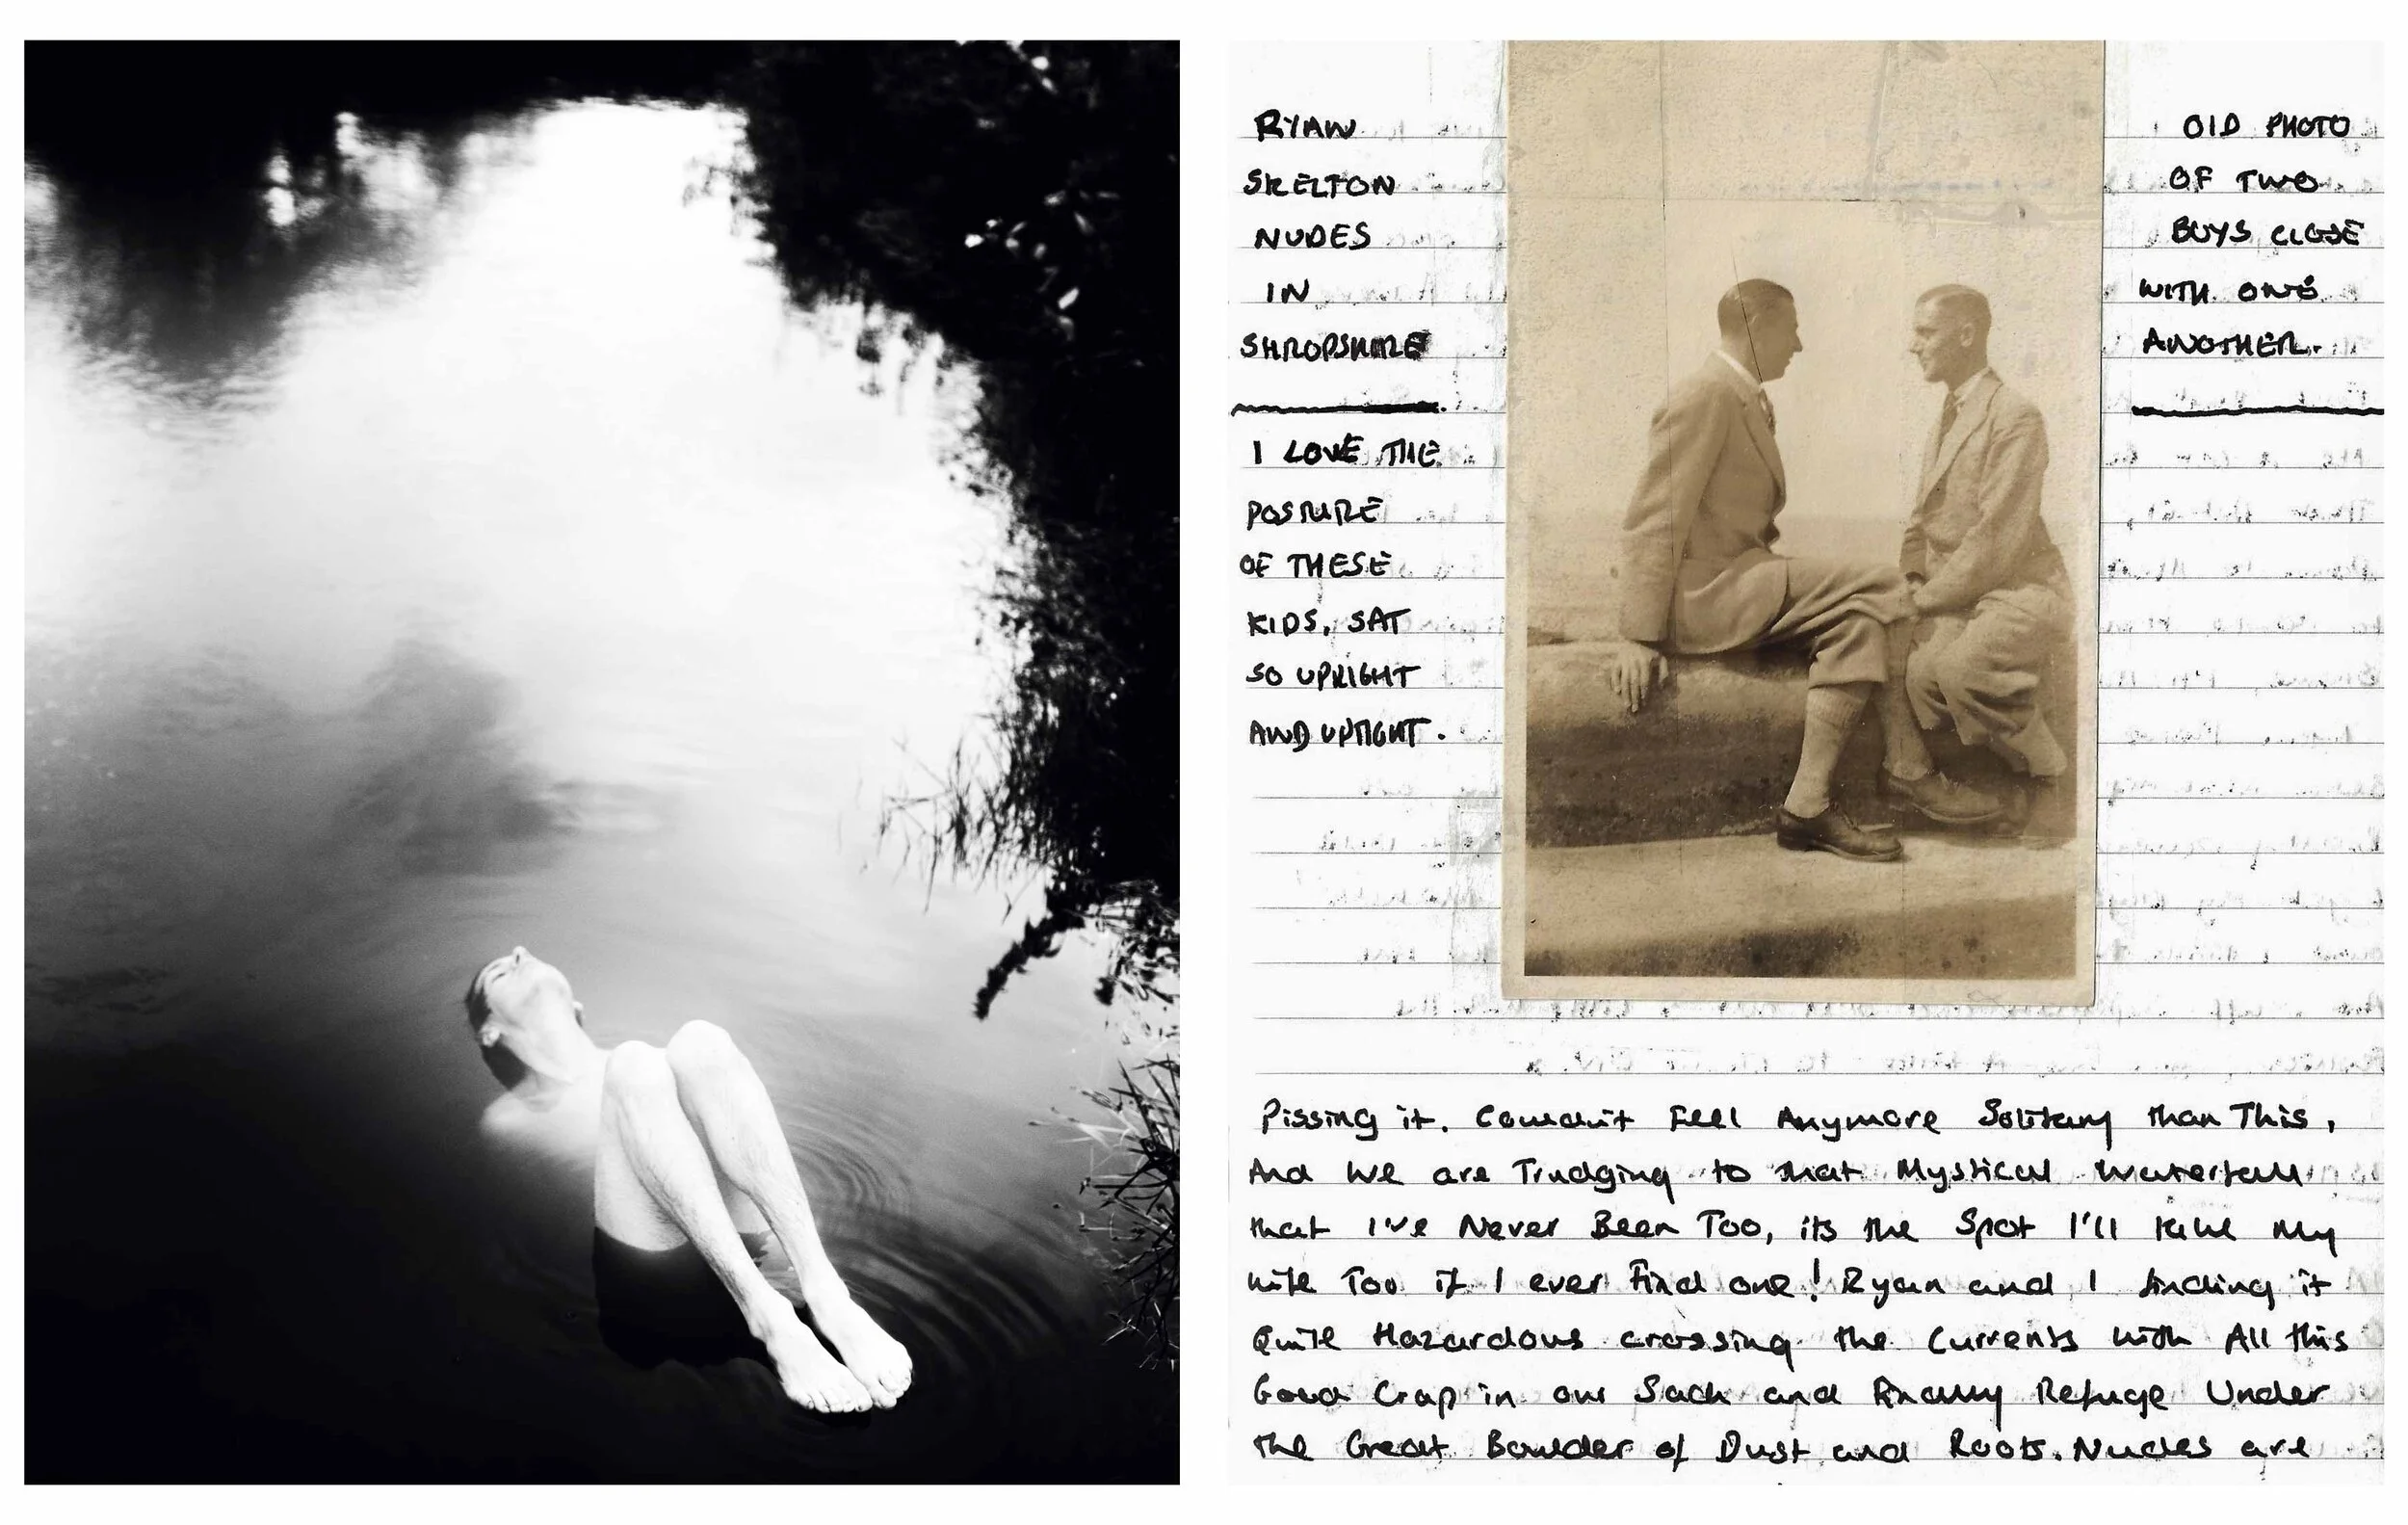 RYAN
SKELTON
NUDES
IN
SHROPSHIRE
I LOVE THE
POSTURE
OF THESE
KIDS, SAT
SO UPRIGHT
AND UPTIGHT.
OLD PHOTO
OF TWO
BOYS CLOSE
WITH ONE
ANOTHER.
Pissing it. Couldn't Feel Anymore Solitary than This,
And we are Trudging to that Mystical Waterfall
that I've Never Been Too, its the Spot I'll take My
wife Too if I ever Find one! Ryan and I finding it
Quite Hazardous crossing the Currents with All this
Good Crap in our Sack and Finally Refuge Under
the Great Boulder of Dust and Roots. Nudes are